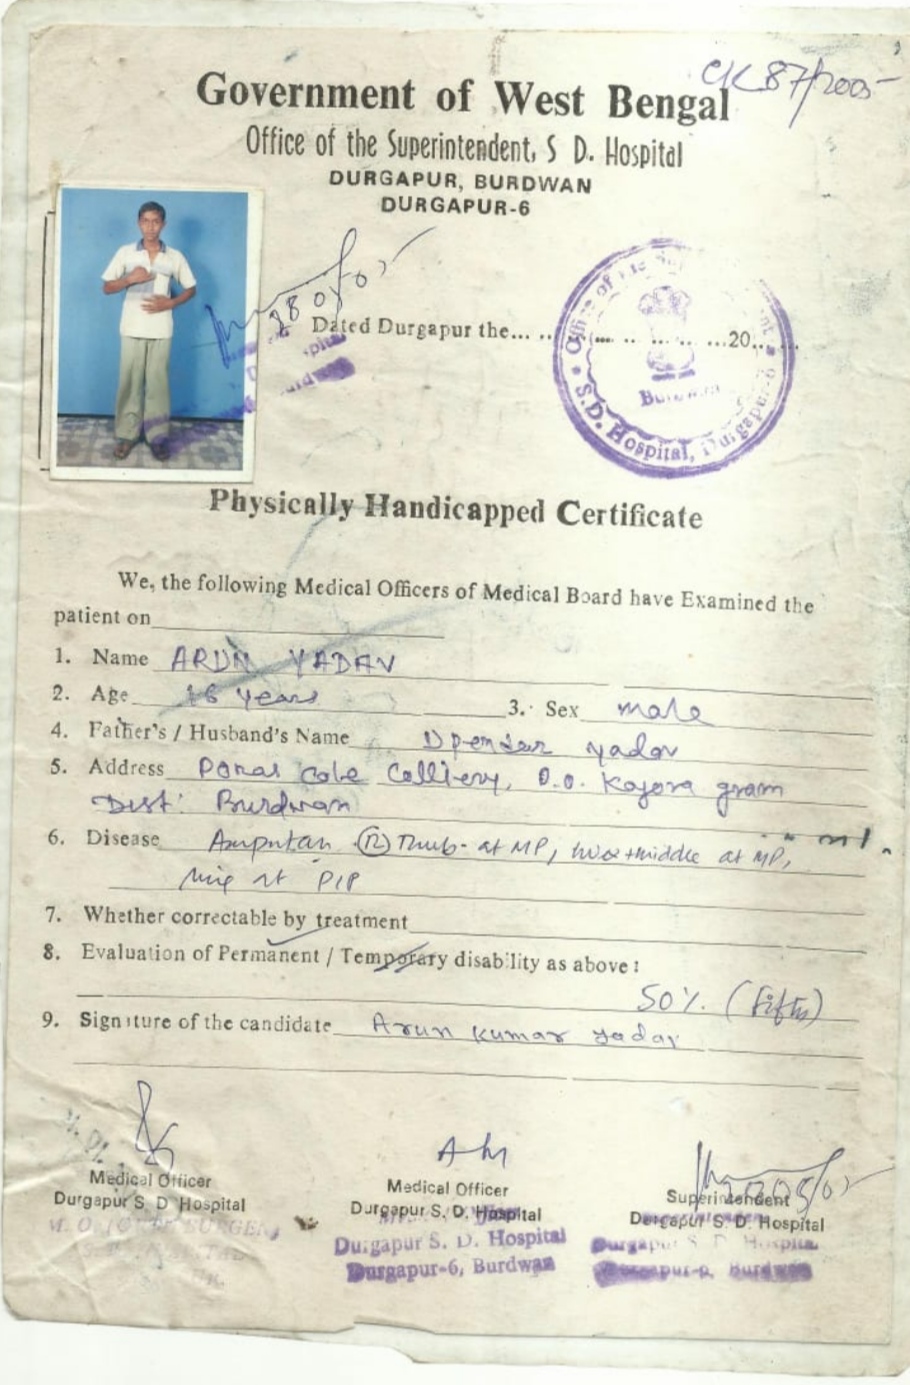 CK 87/2005
Government of West Bengal
Office of the Superintendent, S D. Hospital
DURGAPUR, BURDWAN
DURGAPUR-6
Dated Durgapur the... .. ... .. ... ...20......
Office of the
S.D. Hospital, Durgapur-6
Burdwan
Physically Handicapped Certificate
We, the following Medical Officers of Medical Board have Examined the
patient on
1. Name ARUN YADAV
2. Age 16 years 3. Sex male
4. Father's / Husband's Name Upendar yadav
5. Address Collievy, P.O. Kajora gram
Dist: Burdwan
6. Disease at MP, +middle at MP,
at PIP
7. Whether correctable by treatment
8. Evaluation of Permanent / Temporary disability as above :
50% (Fifty)
9. Signature of the candidate Arun kumar yadav
Medical Officer
Durgapur S. D Hospital
Medical Officer
Durgapur S. D. Hospital
Durgapur S. D. Hospital
Durgapur-6, Burdwan
Superintendent
Durgapur S. D. Hospital
Durgapur S. D Hospital
Durgapur-6, Burdwan